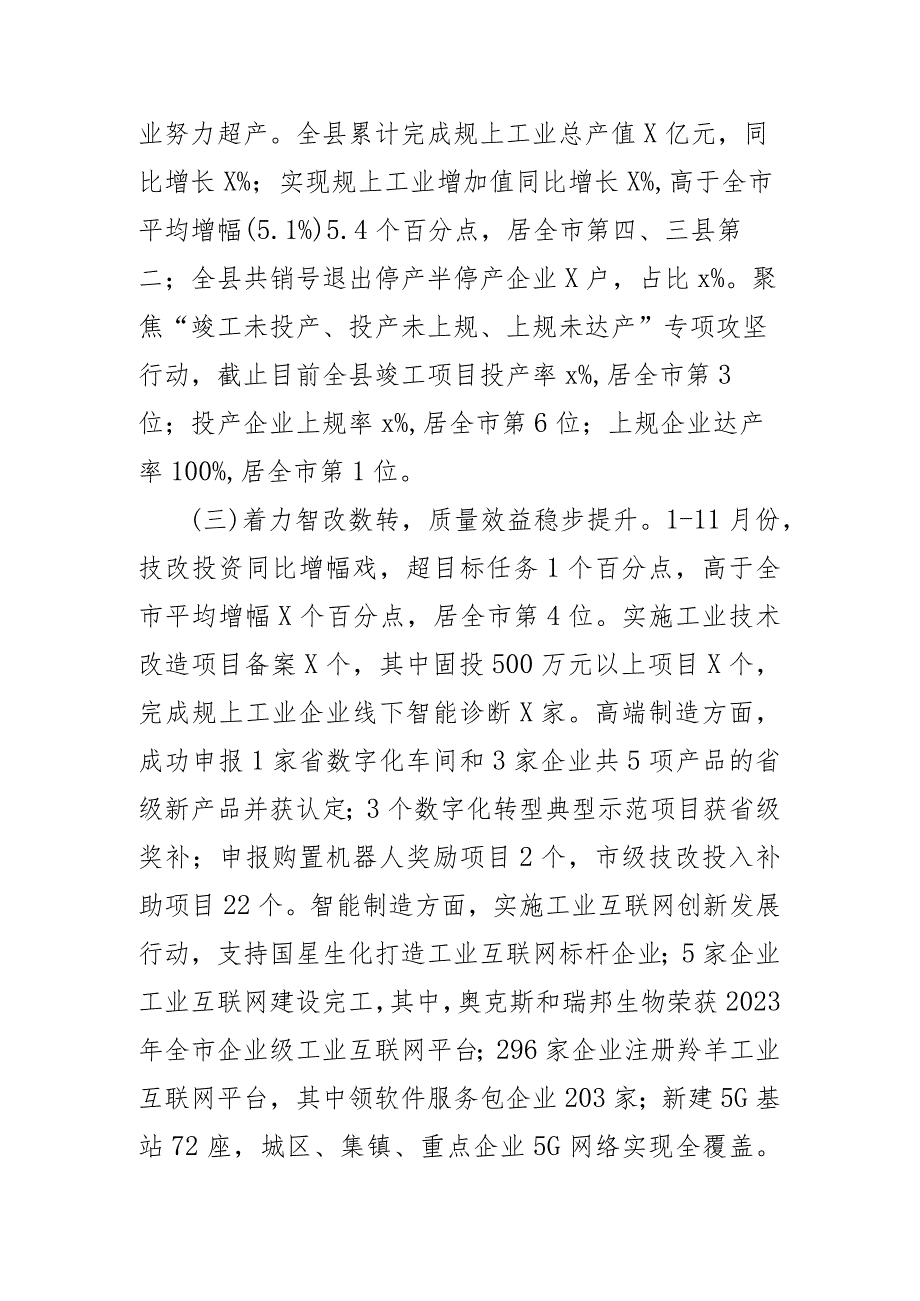 业努力超产。全县累计完成规上工业总产值 X 亿元，同
比增长 X%；实现规上工业增加值同比增长 X%,高于全市
平均增幅(5.1%)5.4 个百分点，居全市第四、三县第
二；全县共销号退出停产半停产企业 X 户，占比 x%。聚
焦“竣工未投产、投产未上规、上规未达产”专项攻坚
行动，截止目前全县竣工项目投产率 x%,居全市第 3
位；投产企业上规率 x%,居全市第 6 位；上规企业达产
率 100%,居全市第 1 位。
(三)着力智改数转，质量效益稳步提升。1-11 月份，
技改投资同比增幅戏，超目标任务 1 个百分点，高于全
市平均增幅 X 个百分点，居全市第 4 位。实施工业技术
改造项目备案 X 个，其中固投 500 万元以上项目 X 个，
完成规上工业企业线下智能诊断 X 家。高端制造方面，
成功申报 1 家省数字化车间和 3 家企业共 5 项产品的省
级新产品并获认定；3 个数字化转型典型示范项目获省级
奖补；申报购置机器人奖励项目 2 个，市级技改投入补
助项目 22 个。智能制造方面，实施工业互联网创新发展
行动，支持国星生化打造工业互联网标杆企业；5 家企业
工业互联网建设完工,其中,奥克斯和瑞邦生物荣获 2023
年全市企业级工业互联网平台；296 家企业注册羚羊工业
互联网平台，其中领软件服务包企业 203 家；新建 5G 基
站 72 座，城区、集镇、重点企业 5G 网络实现全覆盖。